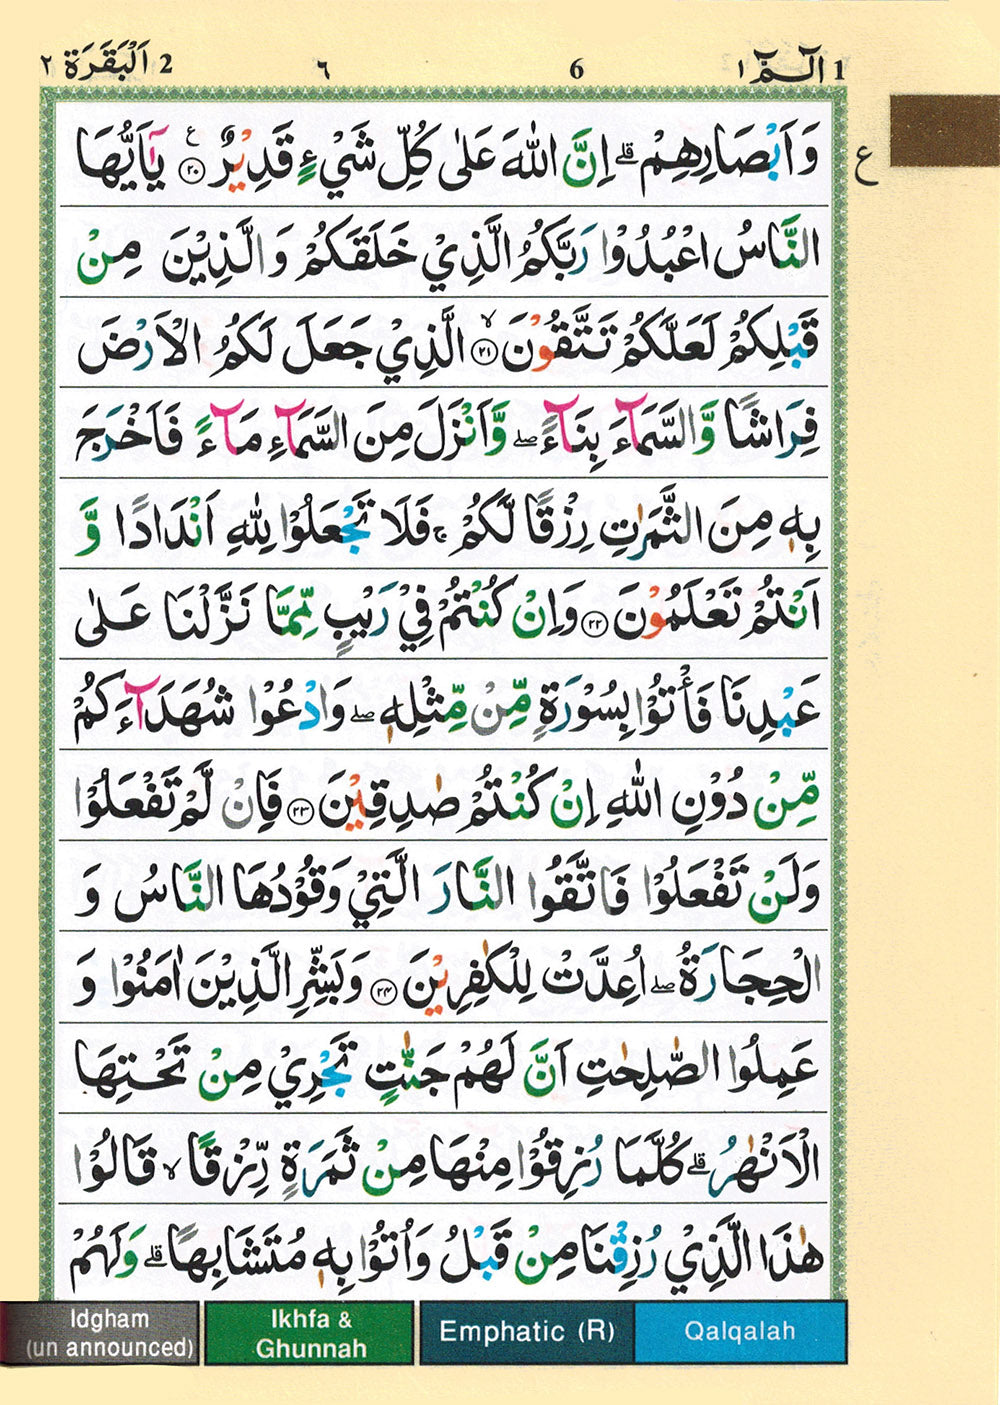 2 اَلْبَقَرَة ٢ ٦ 6 1 الٓـمّٓ ١
وَاَبْصَارِهِمْ ؕ اِنَّ اللّٰهَ عَلٰى كُلِّ شَيْءٍ قَدِيْرٌ ۝٢٠ يٰۤاَيُّهَا
ع
النَّاسُ اعْبُدُوْا رَبَّكُمُ الَّذِيْ خَلَقَكُمْ وَالَّذِيْنَ مِنْ
قَبْلِكُمْ لَعَلَّكُمْ تَتَّقُوْنَ ۙ۝٢١ الَّذِيْ جَعَلَ لَكُمُ الْاَرْضَ
فِرَاشًا وَّالسَّمَآءَ بِنَآءً ۖ وَّاَنْزَلَ مِنَ السَّمَآءِ مَآءً فَاَخْرَجَ
بِهٖ مِنَ الثَّمَرٰتِ رِزْقًا لَّكُمْ ۚ فَلَا تَجْعَلُوْا لِلّٰهِ اَنْدَادًا وَّ
اَنْتُمْ تَعْلَمُوْنَ ۝٢٢ وَاِنْ كُنْتُمْ فِيْ رَيْبٍ مِّمَّا نَزَّلْنَا عَلٰى
عَبْدِنَا فَأْتُوْا بِسُوْرَةٍ مِّنْ مِّثْلِهٖ ۖ وَادْعُوْا شُهَدَآءَكُمْ
مِّنْ دُوْنِ اللّٰهِ اِنْ كُنْتُمْ صٰدِقِيْنَ ۝٢٣ فَاِنْ لَّمْ تَفْعَلُوْا
وَلَنْ تَفْعَلُوْا فَاتَّقُوا النَّارَ الَّتِيْ وَقُوْدُهَا النَّاسُ وَ
الْحِجَارَةُ ۖ اُعِدَّتْ لِلْكٰفِرِيْنَ ۝٢٤ وَبَشِّرِ الَّذِيْنَ اٰمَنُوْا وَ
عَمِلُوا الصّٰلِحٰتِ اَنَّ لَهُمْ جَنّٰتٍ تَجْرِيْ مِنْ تَحْتِهَا
الْاَنْهٰرُ ۗ كُلَّمَا رُزِقُوْا مِنْهَا مِنْ ثَمَرَةٍ رِّزْقًا ۙ قَالُوْا
هٰذَا الَّذِيْ رُزِقْنَا مِنْ قَبْلُ وَاُتُوْا بِهٖ مُتَشَابِهًا ۗ وَلَهُمْ
Idgham
(un announced)
Ikhfa &
Ghunnah
Emphatic (R)
Qalqalah